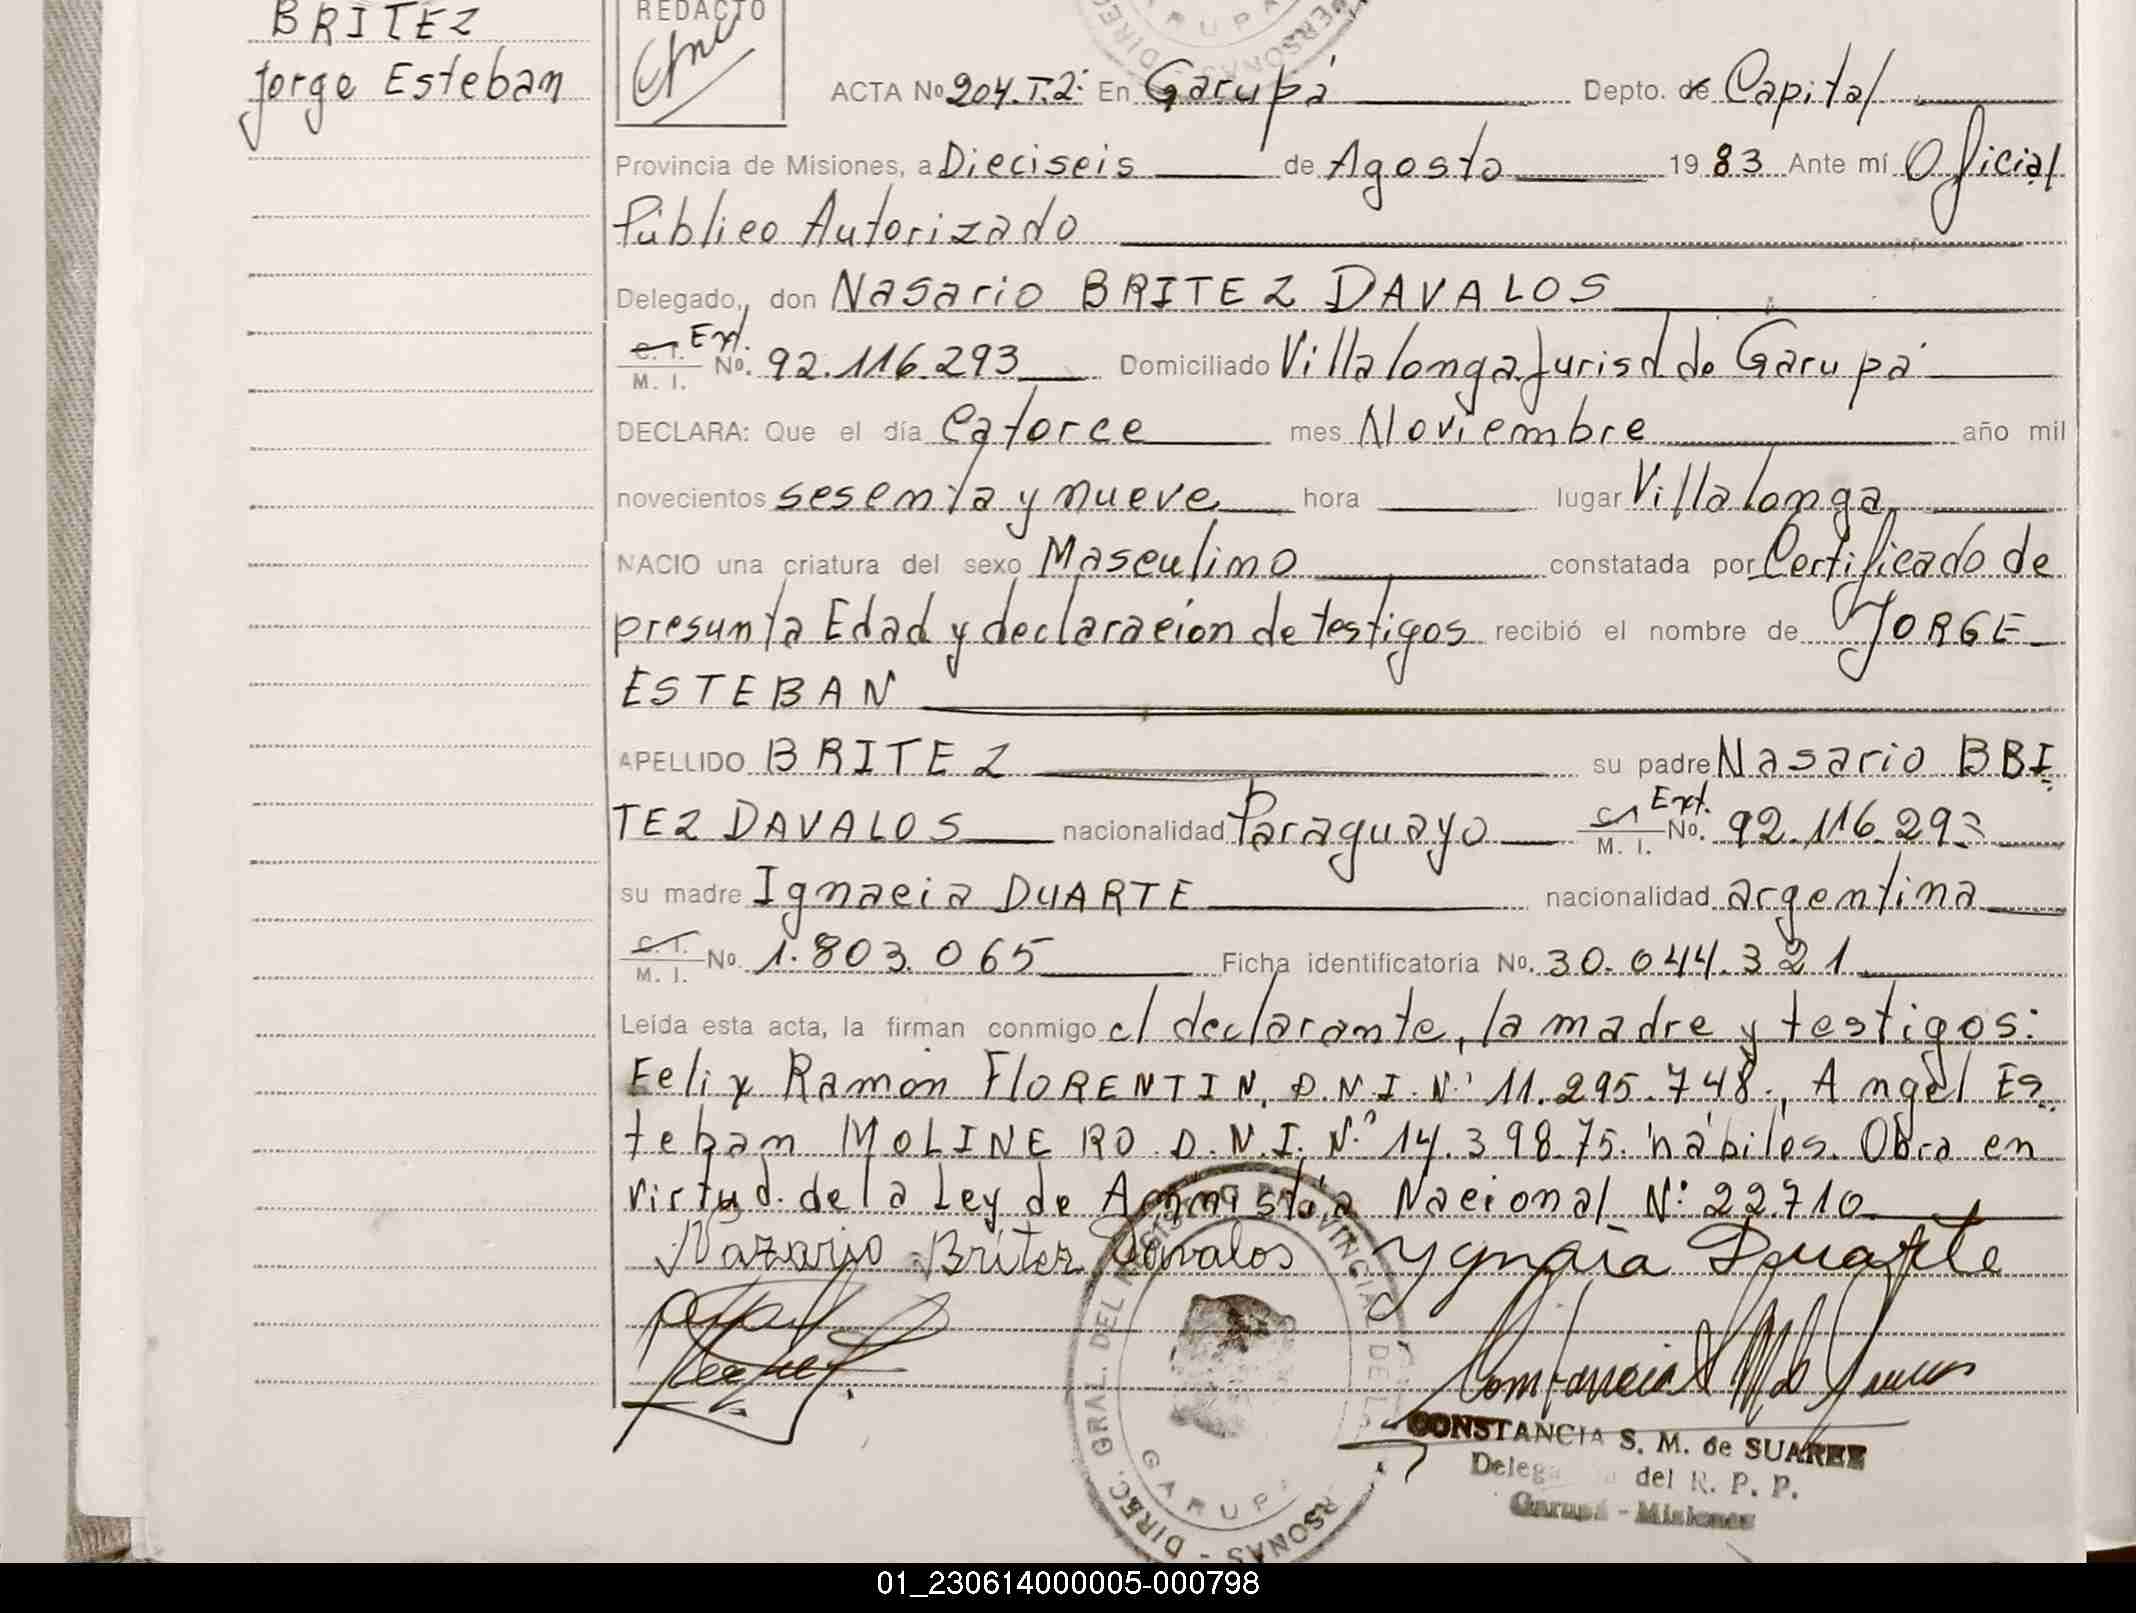 BRITEZ
Jorge Esteban
REDACTO
ACTA No 204.T.2: En Garupá Depto. de Capital
Provincia de Misiones, a Dieciseis de Agosto 1983 Ante mí Oficial
Público Autorizado
Delegado, don Nasario BRITEZ DAVALOS
C. I. Ext.
M. I. No. 92.116.293 Domiciliado Villalonga Jurisd de Garupá
DECLARA: Que el día Catorce mes Noviembre año mil
novecientos sesenta y nueve hora lugar Villalonga
NACIO una criatura del sexo Masculino constatada por Certificado de
presunta Edad y declaración de testigos recibió el nombre de JORGE
ESTEBAN
APELLIDO BRITEZ su padre Nasario BBI
TEZ DAVALOS nacionalidad Paraguayo C I Ext. M. I. No. 92.116.293
su madre Ignacia DUARTE nacionalidad argentina
C. I. M. I. No. 1.803.065 Ficha identificatoria No. 30.044.321
Leída esta acta, la firman conmigo el declarante, la madre y testigos:
Felix Ramón FLORENTIN, D.N.I. N° 11.295.748., Angel Es
teban MOLINERO D.N.I. N.° 14.398.75. hábiles. Obra en
virtud. de la Ley de Amnistía Nacional N° 22.710
Nazario Britez Davalos Ygnacia Duarte
DIREC. GRAL. DEL PROVINCIAL DE
GARUPA
CONSTANCIA S. M. de SUAREZ
del R. P. P.
Garupá - Misiones
01_230614000005-000798